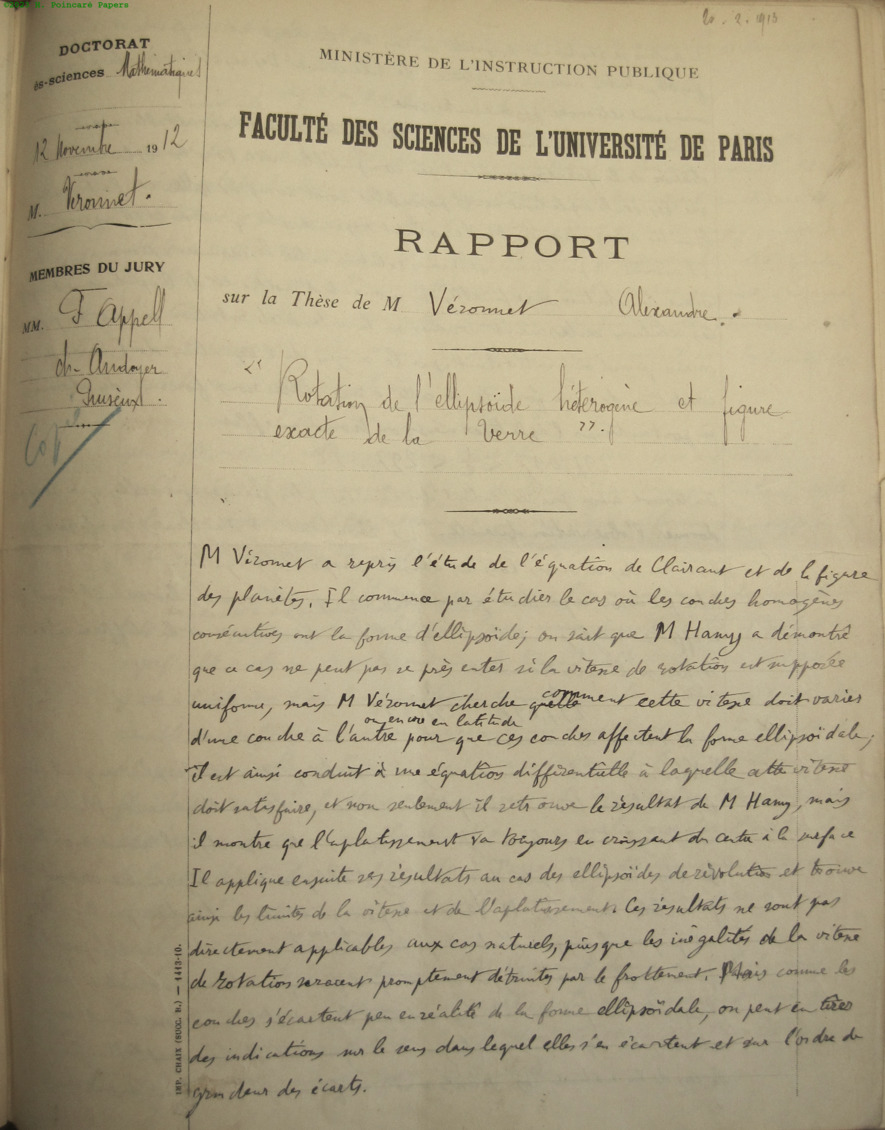 ©2024 H. Poincaré Papers
20.2.1913
DOCTORAT
ès-sciences Mathématiques
12 Novembre 1912
M. Véronnet.
MEMBRES DU JURY
MM. Appell
Andoyer
Puiseux.
MINISTÈRE DE L'INSTRUCTION PUBLIQUE
FACULTÉ DES SCIENCES DE L'UNIVERSITÉ DE PARIS
RAPPORT
sur la Thèse de M Véronnet Alexandre.
" Rotation de l'ellipsoïde hétérogène et figure
exacte de la Terre ".
M Véronnet a repris l'étude de l'équation de Clairaut et de la figure
des planètes. Il commence par étudier le cas où les couches homogènes
consécutives ont la forme d'ellipsoïde; on sait que M Hamy a démontré
que ce cas ne peut pas se présenter si la vitesse de rotation est supposée
uniforme, mais M Véronnet cherche comment cette vitesse doit varier
d'une couche à l'autre ou encore en latitude pour que ces couches affectent la forme ellipsoïdale;
il est ainsi conduit à une équation différentielle à laquelle cette vitesse
doit satisfaire, et non seulement il retrouve le résultat de M Hamy, mais
il montre que l'aplatissement va toujours en croissant du centre à la surface
Il applique ensuite ses résultats au cas des ellipsoïdes de révolution et trouve
ainsi les limites de la vitesse et de l'aplatissement. Ces résultats ne sont pas
directement applicables aux cas naturels, puisque les inégalités de la vitesse
de rotation seraient promptement détruites par le frottement. Mais comme les
couches s'écartent peu en réalité de la forme ellipsoïdale, on peut en tirer
des indications sur le sens dans lequel elles s'en écartent et sur l'ordre de
grandeur des écarts.
IMP. CHAIX (SUCC. B.) — 1443-10.